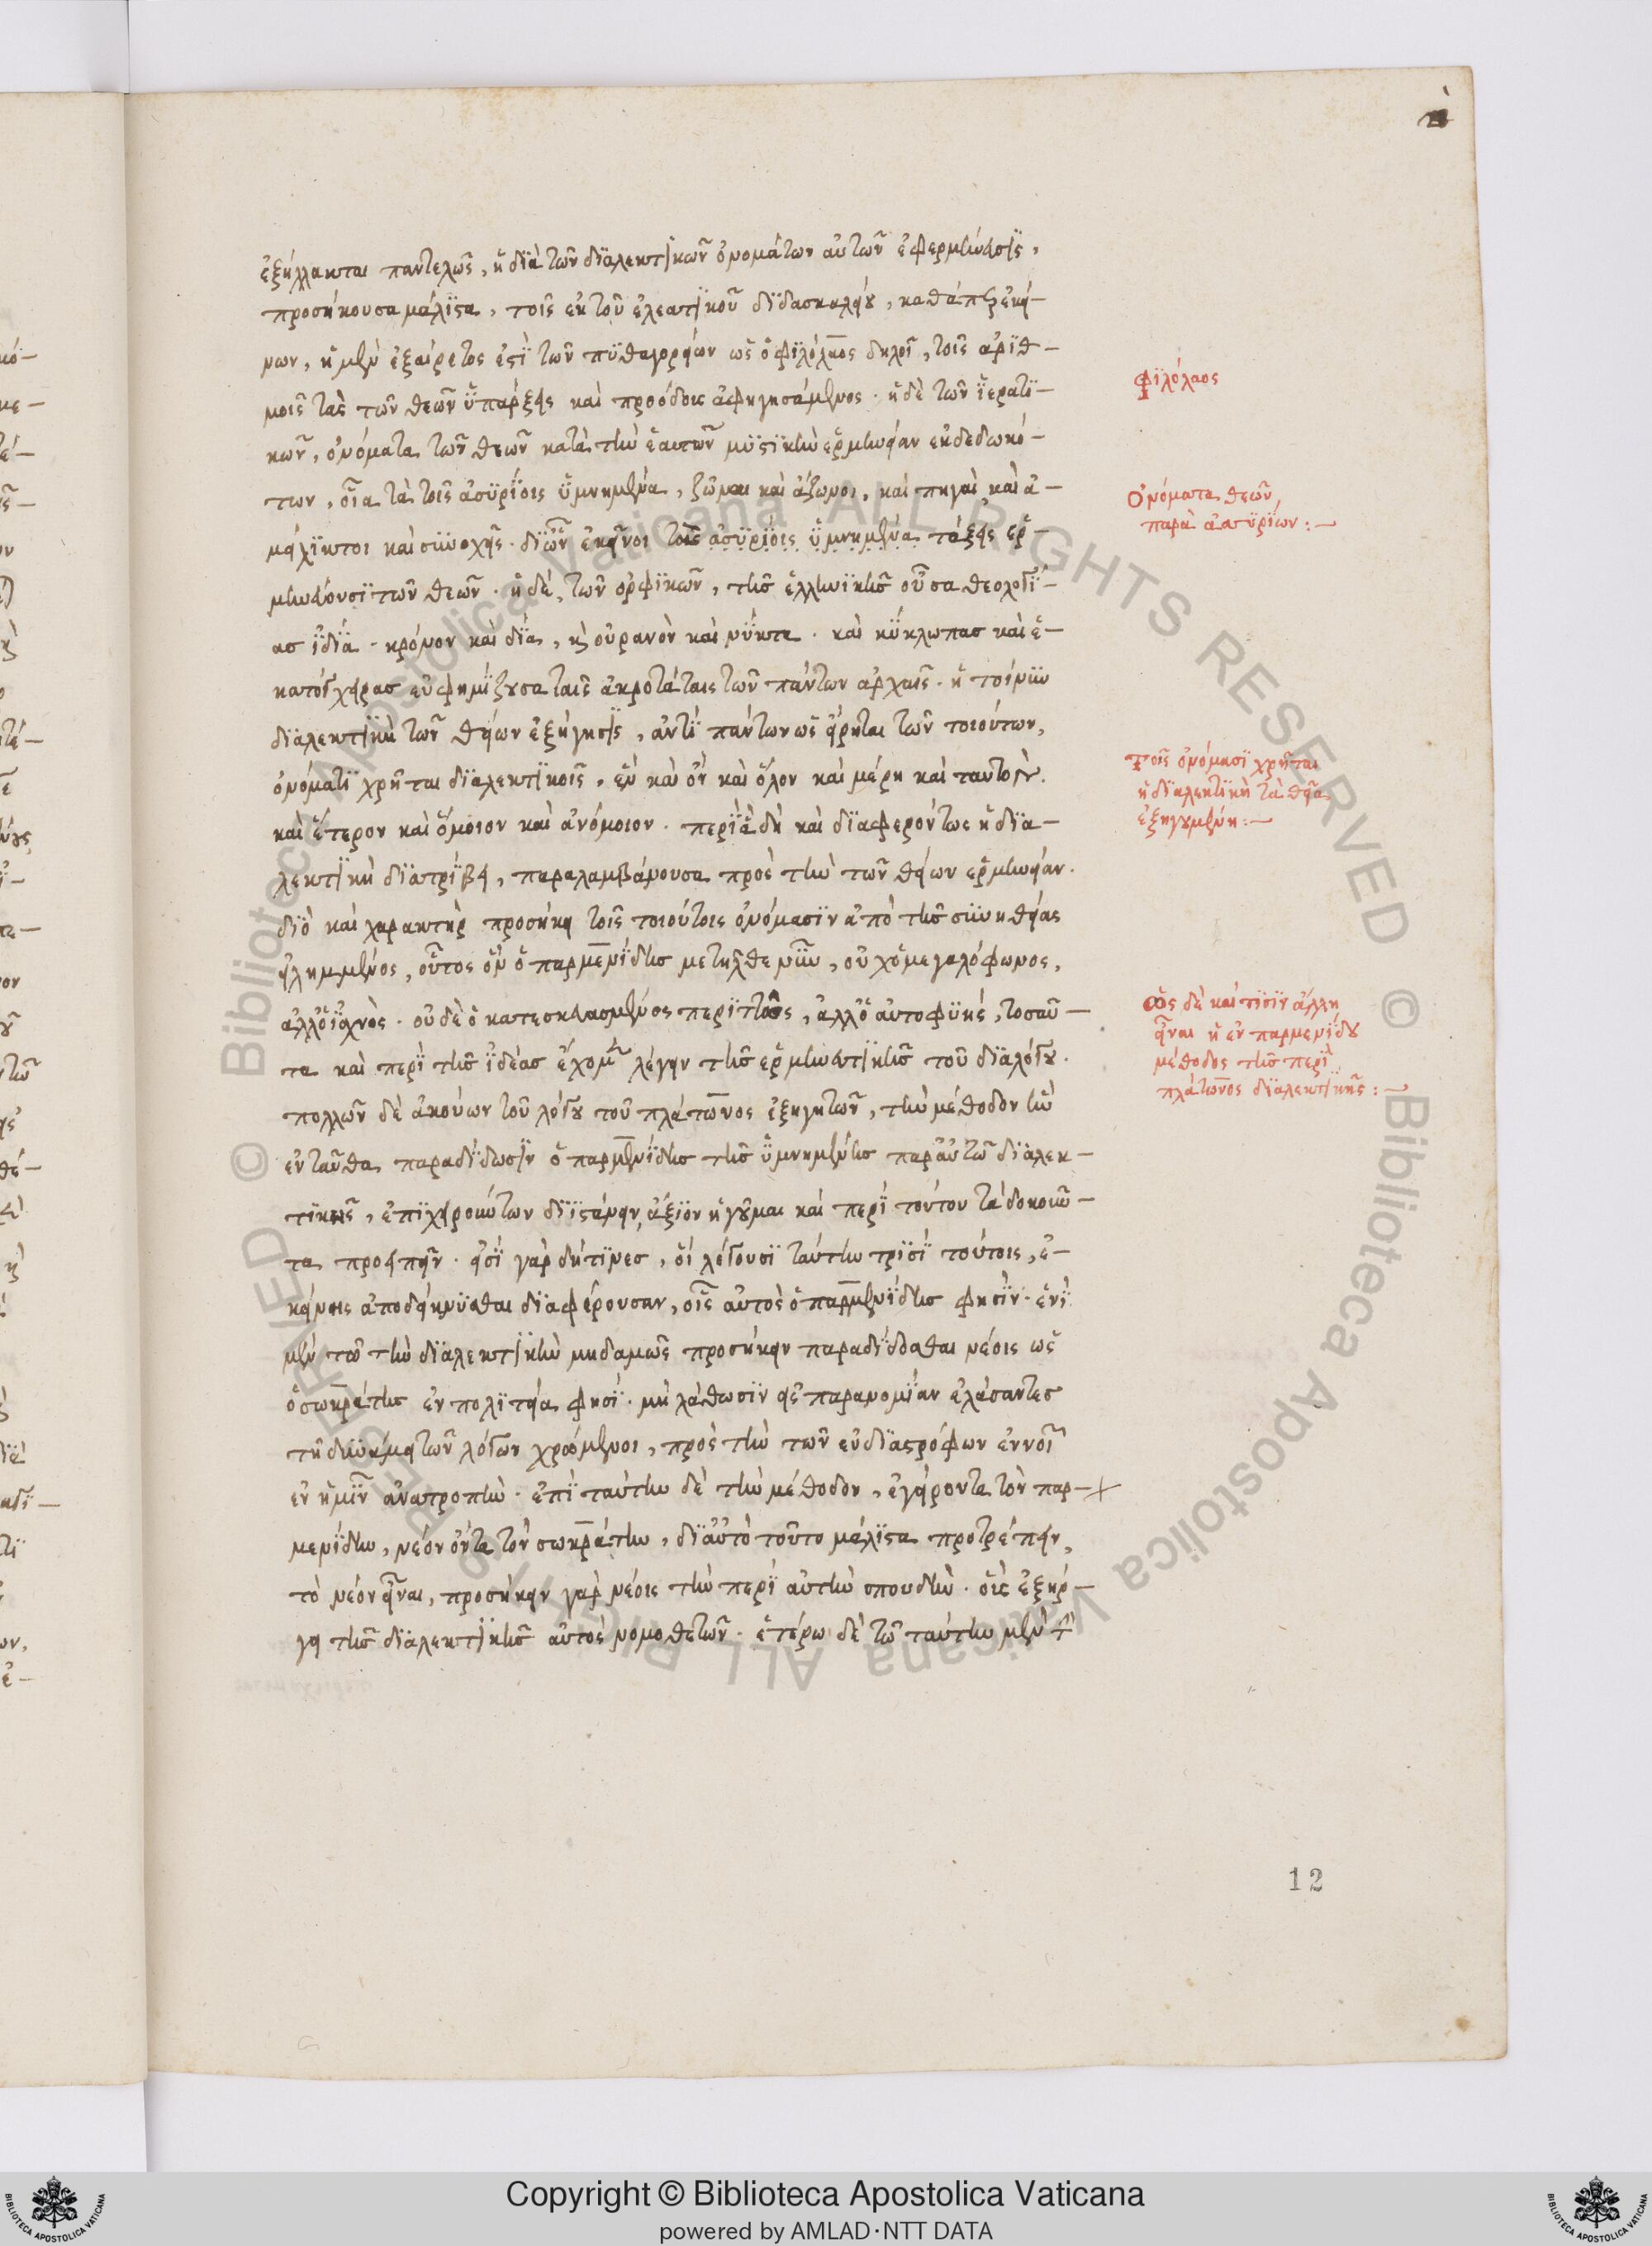 ἐξήλλακται παντελῶς, ἡ διὰ τῶν διαλεκτικῶν ὀνομάτων αὐτῶν ἐφερμήνευσις,
προσήκουσα μάλιστα, τοῖς ἐκ τοῦ ἐλεατικοῦ διδασκαλείου, καθάπερ ἐκεί–
νων, ἡ μὲν ἐξαίρετος ἐστὶ τῶν πυθαγορείων ὡς ὁ φιλόλαος δηλοῖ, τοῖς ἀριθ–
μοῖς τὰς τῶν θεῶν ὑπάρξεις καὶ προόδοις ἀφηγησάμενος. ἡ δὲ τῶν ἱερατι–
κῶν, ὀνόματα τῶν θεῶν κατὰ τὴν ἑαυτῶν μυστικὴν ἑρμηνείαν ἐκδεδωκό–
των, οἷα τὰ τοῖς ἀσυρίοις ὑμνημένα, ζῶναι καὶ ἄζωνοι, καὶ πηγαὶ καὶ ἀ–
μείλικτοι καὶ συνοχεῖς. δι ὧν ἐκεῖνοι τοῖς ἀσυρίοις ὑμνημένα τάξεις ἑρ–
μηνεύουσι τῶν θεῶν. ἡ δὲ, τῶν ὀρφικῶν, τῆς ἑλληνικῆς οὖσα θεολογί–
ας ἰδία. κρόνον καὶ δία, καὶ οὐρανὸν καὶ νύκτα. καὶ κύκλωπας καὶ ἑ–
κατόγχειρας εὐφημίζουσα ταῖς ἀκροτάταις τῶν πάντων ἀρχαῖς. ἡ τοίνυν
διαλεκτικὴ τῶν θείων ἐξήγησις, ἀντὶ πάντων ὡς εἴρηται τῶν τοιούτων,
ὀνόματι χρῆται διαλεκτικοῖς, ἓν καὶ ὂν καὶ ὅλον καὶ μέρη καὶ ταυτὸν.
καὶ ἕτερον καὶ ὅμοιον καὶ ἀνόμοιον. περὶ ἃ δὴ καὶ διαφερόντως ἡ δια–
λεκτικὴ διατρίβει, παραλαμβάνουσα πρὸς τὴν τῶν θείων ἑρμηνείαν.
διὸ καὶ χαρακτὴρ προσήκει τοῖς τοιούτοις ὀνόμασιν ἀπὸ τῆς συνηθείας
εἰλημμένος, οὗτος ὃν ὁ παρμενίδης μετῆλθε νῦν, οὐχ ὁ μεγαλόφωνος,
ἀλλ ὁ ἰσχνὸς. οὐδὲ ὁ κατεσκευασμένος περιττῶς, ἀλλ ὁ αὐτοφυής, τοσαῦ–
τα καὶ περὶ τῆς ἰδέας ἔχομεν λέγειν τῆς ἑρμηνευτικῆς τοῦ διαλόγου.
πολλῶν δὲ ἀκούων τοῦ λόγου τοῦ πλάτωνος ἐξηγητῶν, τὴν μέθοδον ἣν
ἐνταῦθα παραδίδωσιν ὁ παρμενίδης τῆς ὑμνημένης παρ αὐτῷ διαλεκ–
τικῆς, ἐπιχειρούντων διϊστάνειν, ἄξιον ἡγοῦμαι καὶ περὶ τούτου τὰ δοκοῦν–
τα προσειπεῖν. εἰσὶ γὰρ δή τινες, οἳ λέγουσι ταύτην τρισὶ τούτοις, ἐ–
κείνοις ἀποδείκνυσθαι διαφέρουσαν, οἷς αὐτὸς ὁ παρμενίδης φησὶν. ἑνὶ
μὲν τῷ τὴν διαλεκτικὴν μηδαμῶς προσήκειν παραδίδοσθαι νέοις ὡς
ὁ σωκράτης ἐν πολιτείᾳ φησὶ. μὴ λάθωσιν εἰς παρανομίαν ἐλάσαντες
τῇ δυνάμει τῶν λόγων χρώμενοι, πρὸς τὴν τῶν εὐδιαστρόφων ἐννοιῶν
ἐν ἡμῖν ἀνατροπὴν. ἐπὶ ταύτην δὲ τὴν μέθοδον, ἐγείροντα τὸν παρ–
μενίδην, νέον ὄντα τὸν σωκράτην, δι αὐτὸ τοῦτο μάλιστα προτρέπειν,
τὸ νέον εἶναι, προσήκειν γὰρ νέοις τὴν περὶ αὐτὴν σπουδὴν. οἷς ἐξείρ–
γει τῆς διαλεκτικῆς αὐτὸς νομοθετῶν. ἑτέρῳ δὲ τῷ ταύτην μὲν
Φιλόλαος
Ὀνόματα θεῶν,
παρὰ ἀσσυρίων:–
Τοῖς ὀνόμασι χρῆται
ἡ διαλεκτικὴ τὰ θεῖα
ἐξηγουμένη:–
Ὡς δὲ καί τισιν ἄλλη
εἶναι ἡ ἐν παρμενίδου
μέθοδος τῆς περὶ
πλάτωνος διαλεκτικῆς:–
12
Copyright © Biblioteca Apostolica Vaticana
powered by AMLAD·NTT DATA